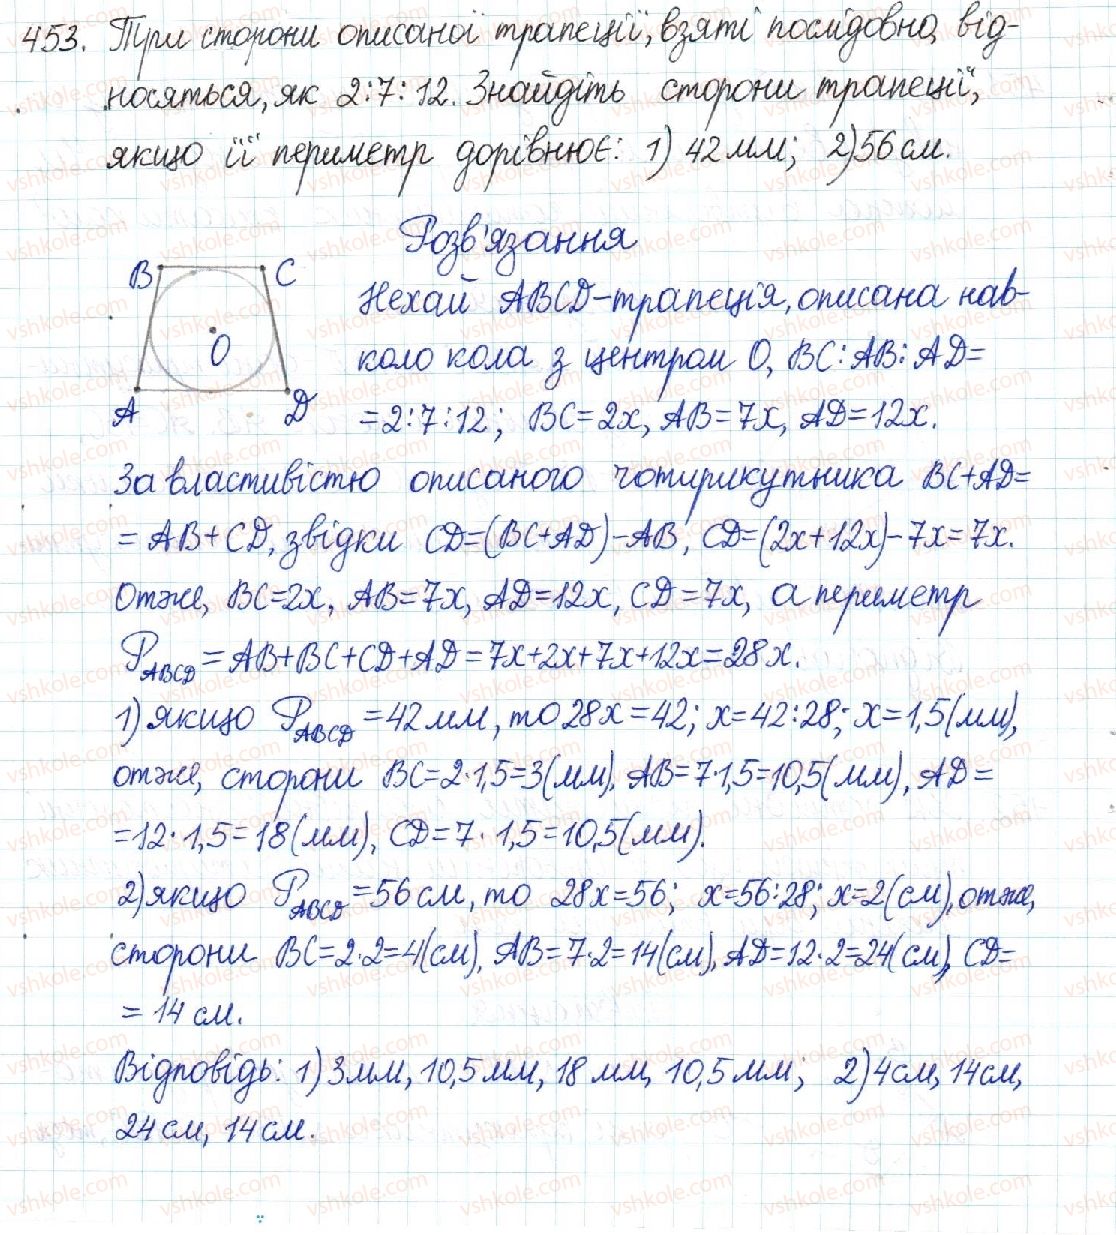 453. Три сторони описаної трапеції, взяті послідовно, від-
носяться, як 2:7:12. Знайдіть сторони трапеції,
якщо її периметр дорівнює: 1) 42 мм; 2) 56 см.
Розв'язання
B C
O
A D
Нехай ABCD-трапеція, описана нав-
коло кола з центром O, BC:AB:AD=
=2:7:12; BC=2x, AB=7x, AD=12x.
За властивістю описаного чотирикутника BC+AD=
=AB+CD, звідки CD=(BC+AD)-AB, CD=(2x+12x)-7x=7x.
Отже, BC=2x, AB=7x, AD=12x, CD=7x, а периметр
P_ABCD = AB+BC+CD+AD=7x+2x+7x+12x=28x.
1) якщо P_ABCD=42 мм, то 28x=42; x=42:28; x=1,5(мм),
отже, сторони BC=2·1,5=3(мм), AB=7·1,5=10,5(мм), AD=
=12·1,5=18(мм), CD=7·1,5=10,5(мм).
2) якщо P_ABCD=56 см, то 28x=56; x=56:28; x=2(см), отже,
сторони BC=2·2=4(см), AB=7·2=14(см), AD=12·2=24(см), CD=
=14 см.
Відповідь: 1) 3 мм, 10,5 мм, 18 мм, 10,5 мм; 2) 4 см, 14 см,
24 см, 14 см.
vshkole.com